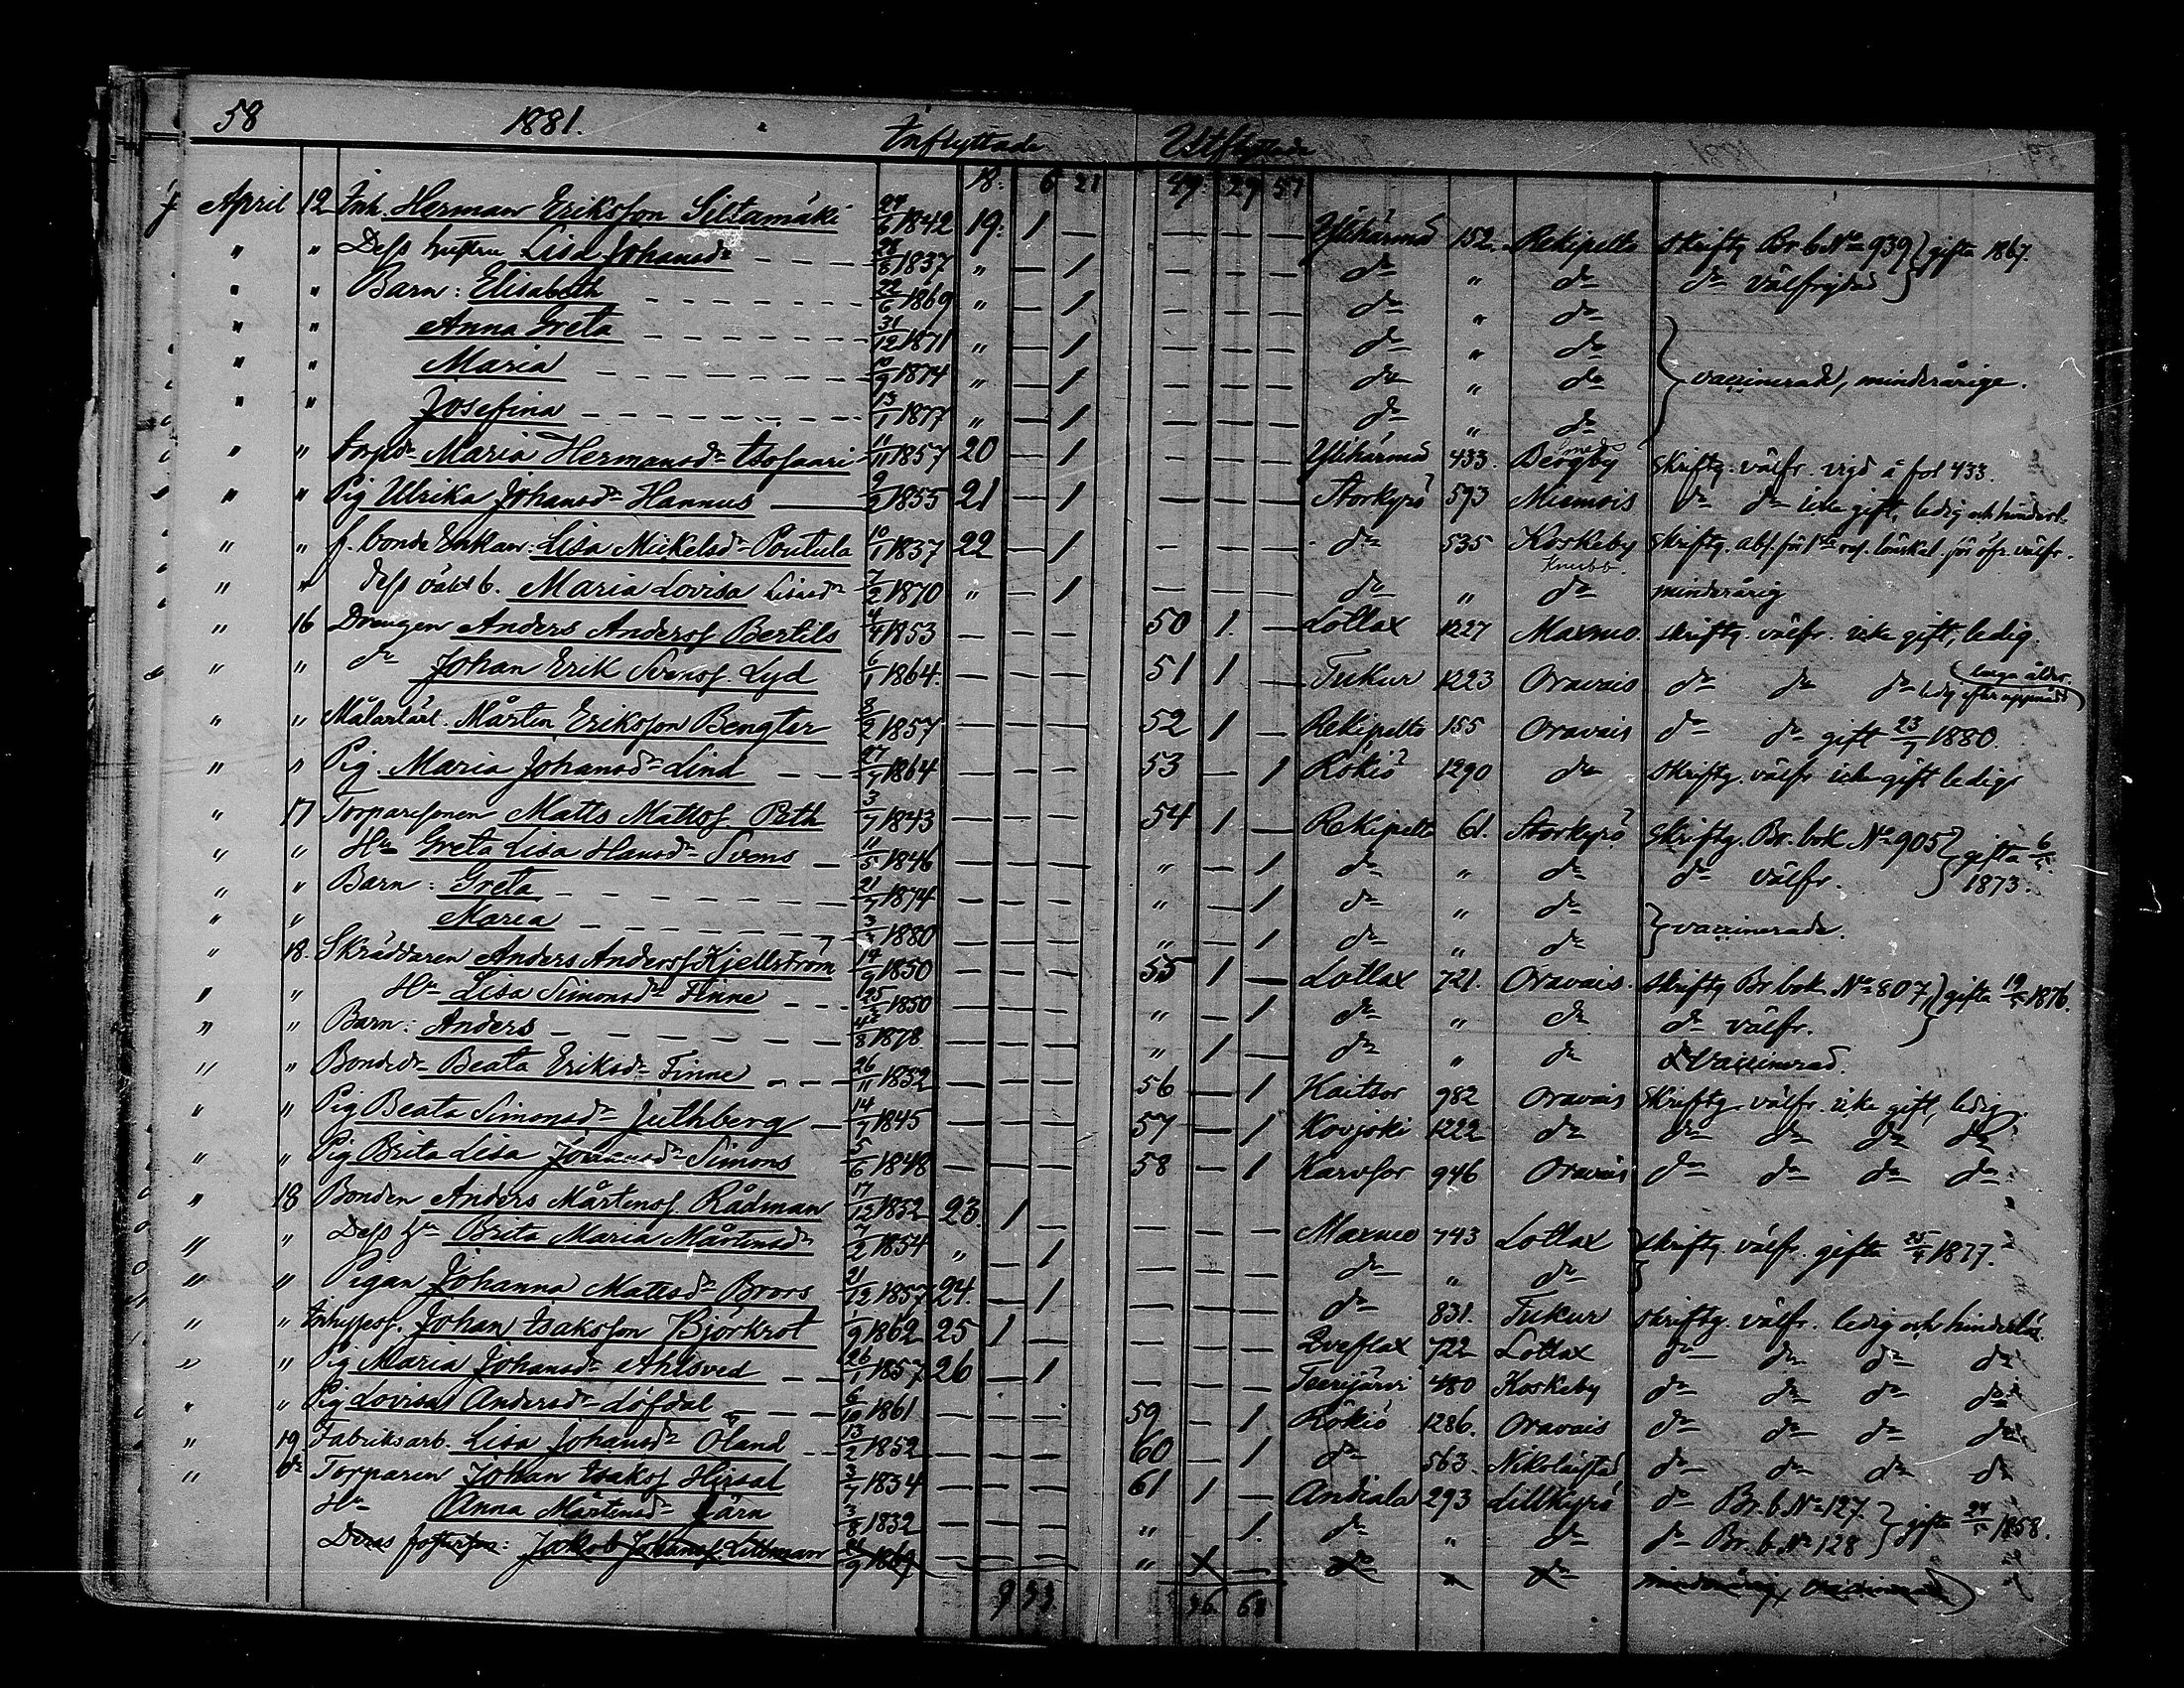 58 1881. Inflyttade Utflyttade
18: 6 21 49: 29 57
April 12 Inh. Herman Eriksson Siltamäki 1842 19: 1 — — — — Ylihärmä 152. Rekipelto skriftg Br. b. No 939 } gifta 1867.
" " Dess hustru Lisa Johansdr 1837 " — 1 — — — dr " dr dr välfrejdad
" " Barn: Elisabeth 22/6 1869 " — 1 — — — dr " dr
" " Anna Greta 31/12 1871 " — 1 — — — dr " dr
" " Maria 1874 " — 1 — — — dr " dr } vaccinerade, minderårige.
" " Josefina 13/1 1877 " — 1 — — — dr " dr
" " Maria Hermansdr Isosaari 11/11 1857 20 — 1 — — — Ylihärmä 433. Bergby skriftg. välfr. vigd å fol 433.
" " Pig Ulrika Johansdr Hannus 9/2 1855 21 — 1 — — — Storkyrö 593 Miemois dr dr icke gift, ledig och hinderl.
" " f. bonde Enkan: Lisa Mickelsdr Poutula 10/1 1837 22 — 1 — — — dr 535 Koskeby skriftg. välfr.
Knubb.
" " dess oäkt b. Maria Lovisa Lisasdr 7/2 1870 " — 1 — — — dr " dr minderårig
" 16 Drengen Anders Anderss. Bertils 4/4 1853 — — — 50 1. — Lotlax 1227 Maxmo. skriftg. välfr. icke gift, ledig.
" " dr Johan Erik Svenss. Lyd 6/1 1864. — — — 51 1 — Tukur 1223 Oravais dr dr dr ledig efter uppnådd
laga ålder.
" " Målarlärl. Mårten Eriksson Bengter 8/2 1857 — — — 52 1 — Rekipelto 155 Oravais dr dr gift 23/7 1880.
" " Pig. Maria Johansdr Lind 27/7 1864 — — — 53 — 1 Rökiö 1290 dr skriftg. välfr icke gift ledig
" 17 Torparesonen Matts Mattss. Peth 3/7 1843 — — — 54 1 — Rekipelto 61. Storkyrö skriftg. Br. bok No 905 } gifta
" " Hu Greta Lisa Hansdr Svens 11/5 1846 — — — " — 1 dr " dr dr välfr. 1873.
" " Barn: Greta 21/7 1874 — — — " — 1 dr " dr
" " Maria 1880 — — — " — 1 dr " dr } vaccinerade.
" 18. Skräddaren Anders Anderss Kjellström 14/9 1850 — — — 55 1 — Lotlax 721. Oravais. skriftg Br bok No 807, } gifta 1876.
" " Hu Lisa Simonsdr Finne 1850 — — — " — 1 dr " dr dr välfr.
" " Barn: Anders 1878 — — — " 1 — dr " dr vaccinerad.
" " Bondedr Beata Eriksdr Finne 26/11 1852 — — — 56 — 1 Kaitsor 982 Oravais skriftg. välfr. icke gift, ledig.
" " Pig Beata Simonsdr Juthberg 14/7 1845 — — — 57 — 1 Kovjoki 1222 dr dr dr dr dr
" " Pig Brita Lisa Johansdr Simons 5/6 1848 — — — 58 — 1 Karvsor 946 Oravais dr dr dr dr
" 18 Bonden Anders Mårtenss. Rådman 17/12 1852 23. 1 — — — — Maxmo 743 Lotlax } skriftg. välfr. gifta 1877.
" " Dess Hu Brita Maria Mårtensdr 7/2 1854 " — 1 — — — dr " dr
" " Pigan Johanna Mattsdr Brors 21/12 1857 24. — 1 — — — dr 831. Tukur skriftg. välfr. ledig och hinderlös.
" " Inhysess. Johan Isaksson Björkrot 1862 25 1 — — — — Qveflax 722 Lotlax dr dr dr dr
" " Pig Maria Johansdr Ahlsved 26/1 1857 26 — 1 — — — Teerijärvi 480 Koskeby dr dr dr dr
" " Pig Lovisa Andersdr Löfdal 6/10 1861 — — — 59 — 1 Rökiö 1286. Oravais dr dr dr dr
" 19. Fabriksarb. Lisa Johansdr Öland 13/2 1852 — — — 60 — 1 dr 563. Nikolaistad dr dr dr dr
" dr Torparen Johan Isakss Hirsal 3/7 1834 — — — 61 1 — Andiala 293 Lillkyrö dr Br. b. No 127. } gifta 1858.
Hu Anna Mårtensdr Järn 3/8 1832 — — — " — 1. dr " dr dr Br. b. No 128
Deras fosterson: Jakob Johanss. Littman 1869 — — — " — dr " dr minderårig, vaccinerad
9 33. 36. 68